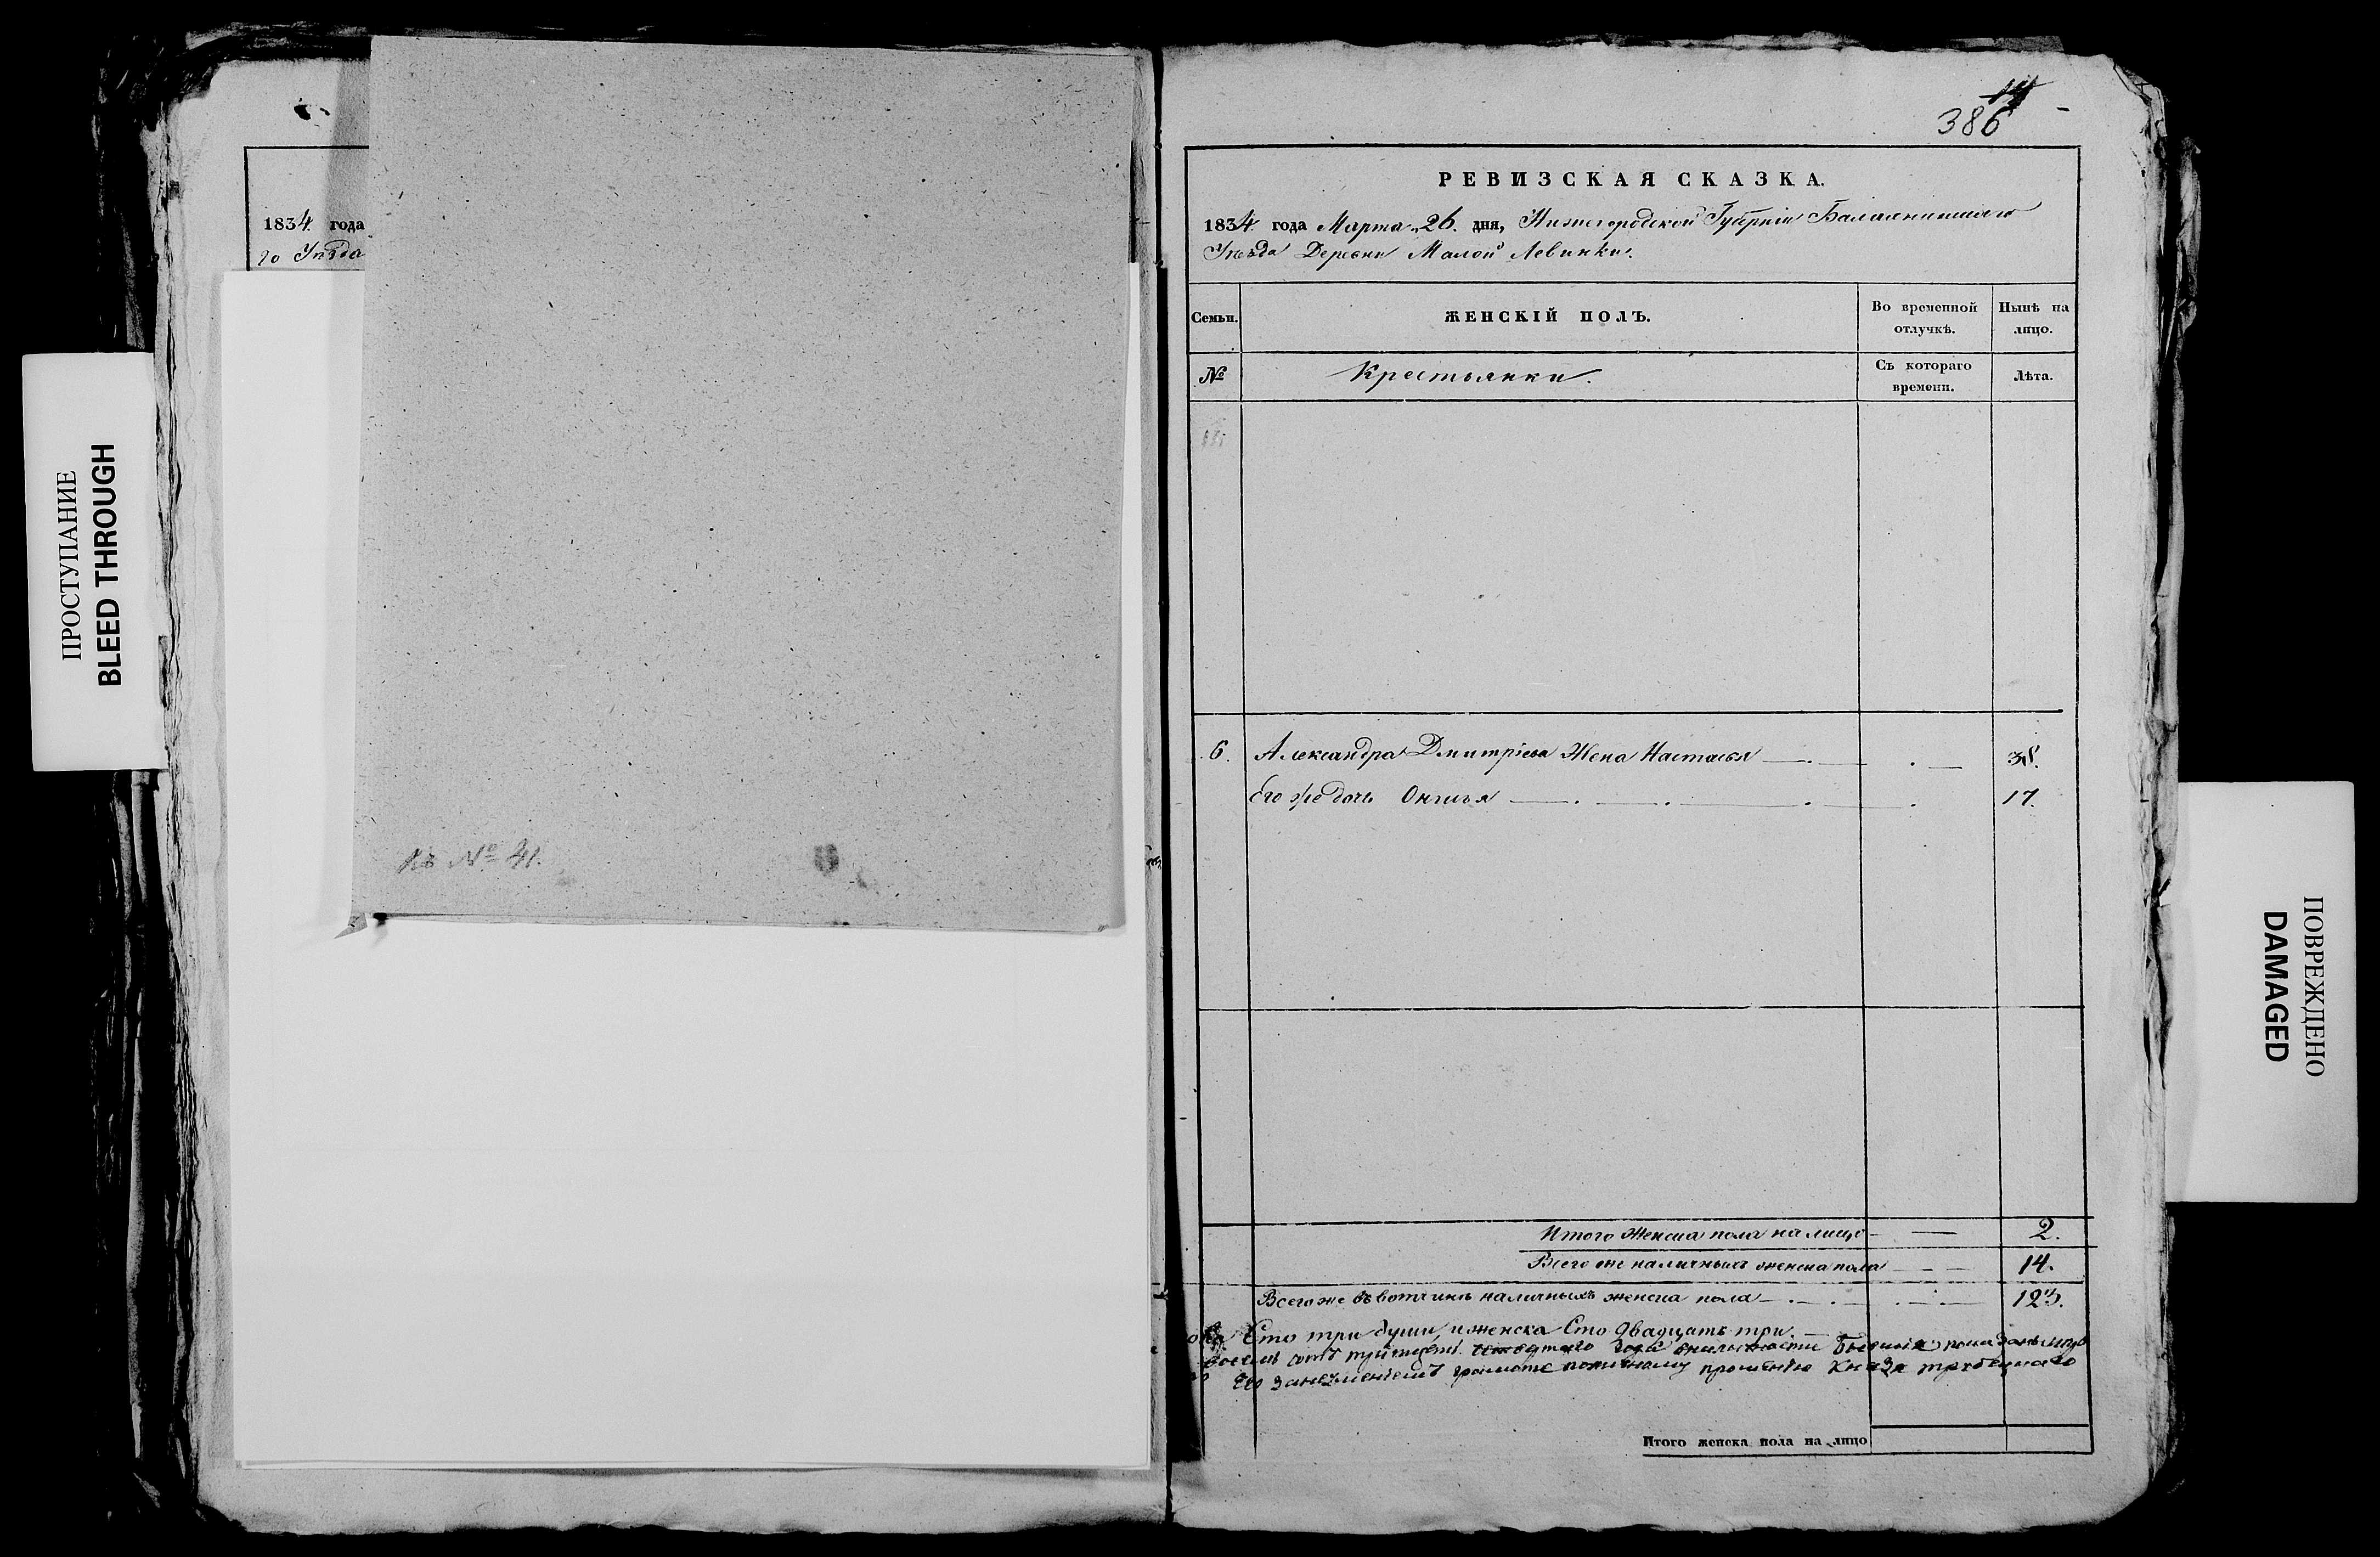 ПРОСТУПАНИЕ
BLEED THROUGH
1834. года
го Уѣзда
Къ № 41.
14
386
РЕВИЗСКАЯ СКАЗКА.
1834 года Марта 26. дня, Нижегородской Губерніи Балахнинскаго
Уѣзда Деревни Малой Левинки.
Семьи.
ЖЕНСКІЙ ПОЛЪ.
Во временной отлучкѣ.
Нынѣ на лицо.
№
Крестьянки.
Съ котораго времени.
Лѣта.
6. Александра Дмитріева Жена Настасья 38.
Его же дочь 17.
Итого Женска пола налицо 2.
Всего же наличныхъ женска пола 14.
Всего же въ вотчинѣ наличныхъ женска пола 123.
Сто три души, и женска Сто двадцать три.
восемь сотъ тритцать года
Его грамоте прошенію Князя
Итого женска пола на лицо
ПОВРЕЖДЕНО
DAMAGED